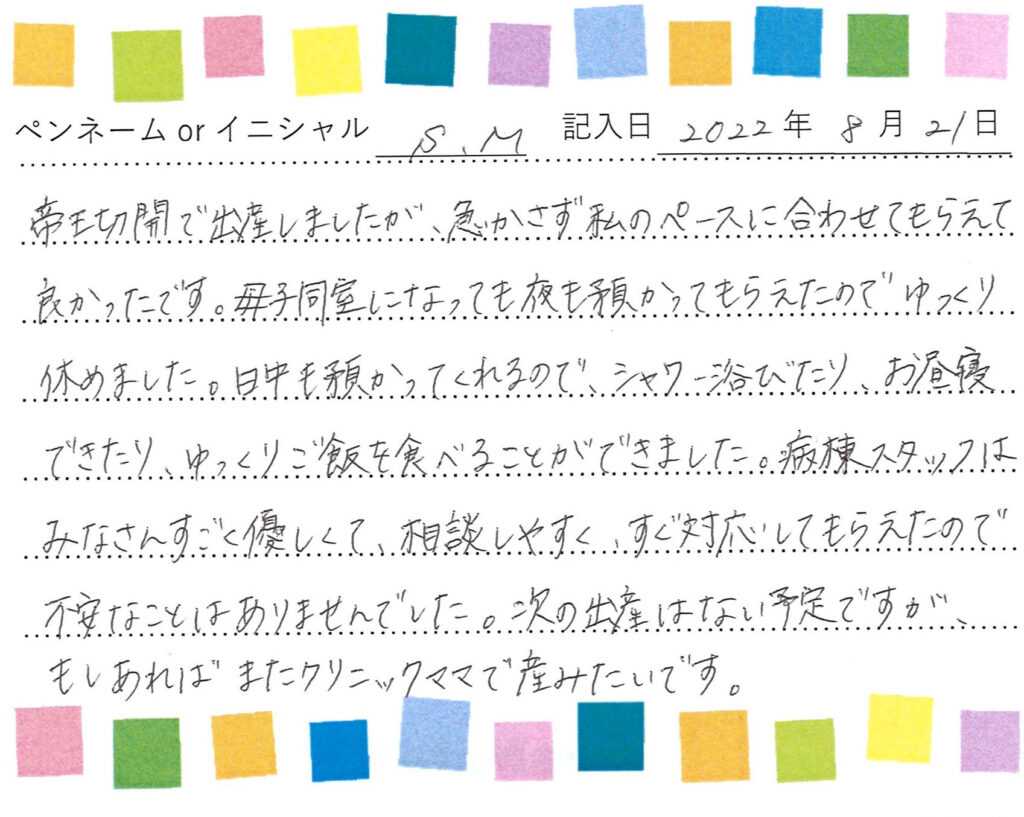 ペンネーム or イニシャル S.M 記入日 2022年 8月 21日
帝王切開で出産しましたが、急かさず私のペースに合わせてもらえて
良かったです。母子同室になっても夜も預かってもらえたのでゆっくり
休めました。日中も預かってくれるので、シャワー浴びたり、お昼寝
できたり、ゆっくりご飯を食べることができました。病棟スタッフは
みなさんすごく優しくて、相談しやすく、すぐ対応してもらえたので
不安なことはありませんでした。次の出産はない予定ですが、
もしあればまたクリニックママで産みたいです。